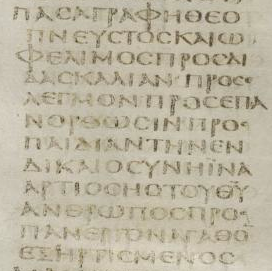 ΠΑϹΑΓΡΑΦΗΘΕΟ
ΠΝΕΥϹΤΟϹΚΑΙΩ
ΦΕΛΙΜΟϹΠΡΟϹΔΙ
ΔΑϹΚΑΛΙΑΝ ΠΡΟϹ
ΛΕΓΜΟΝΠΡΟϹΕΠΑ
ΝΟΡΘΩϹΙΝΠΡΟϹ
ΠΑΙΔΙΑΝΤΗΝΕΝ
ΔΙΚΑΙΟϹΥΝΗΙΝΑ
ΑΡΤΙΟϹΗΟΤΟΥΘΥ
ΑΝΘΡΩΠΟϹΠΡΟϹ
ΠΑΝΕΡΓΟΝΑΓΑΘΟ
ΕΞΗΡΤΙϹΜΕΝΟϹ